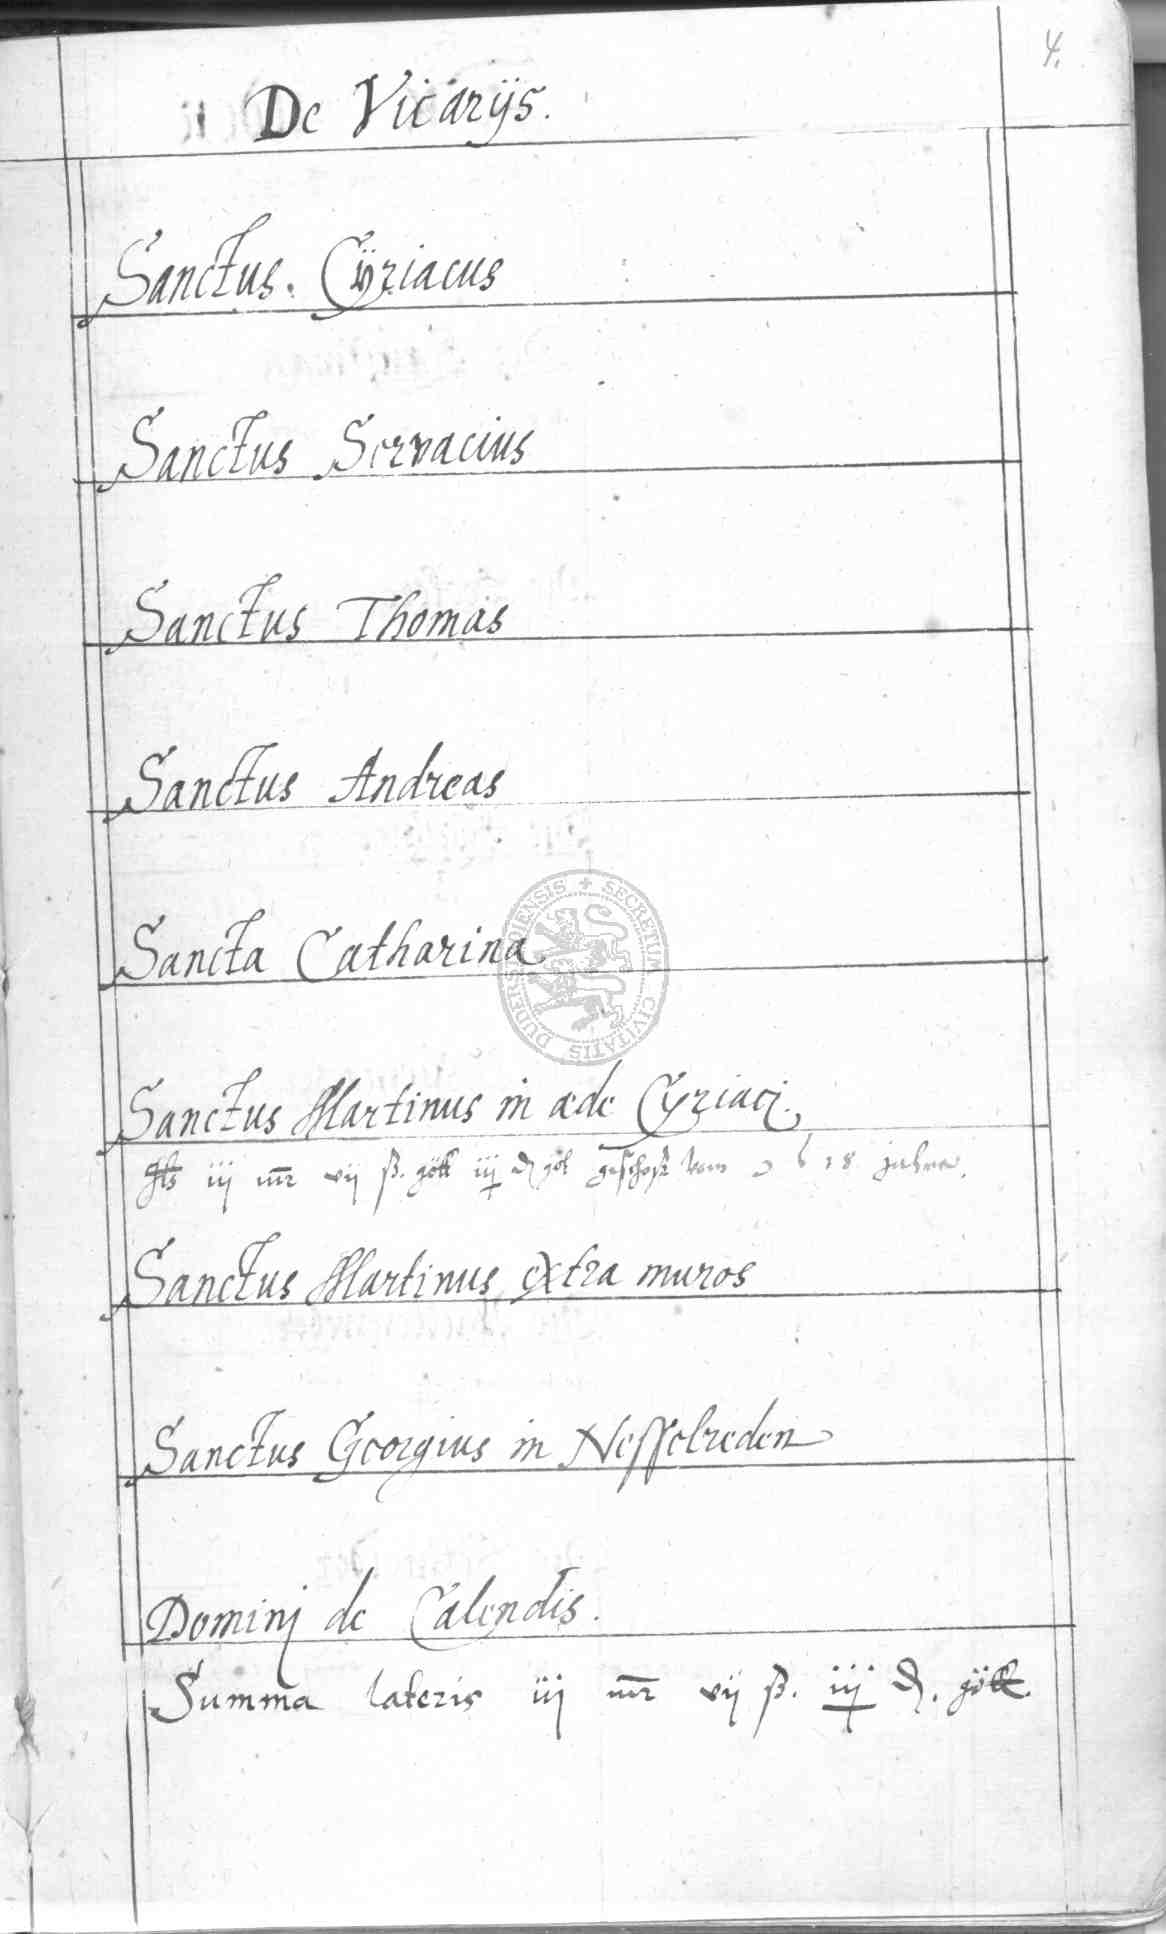 4.
De Vicarijs.
Sanctus. Cÿriacus
Sanctus Servacius
Sanctus Thomas
Sanctus Andreas
Sancta Catharina
SECRETUM CIVITATIS DUDERSTADIENSIS
Sanctus Martinus in æde Cyriaci.
iij mr vij ß. gött iij ₰ göt geschoß vom 1618 jahre.
Sanctus Martinus extra muros
Sanctus Georgius in Nesselreden
Dominj de Calendis.
Summa lateris iij mr vij ß. iij ₰. gött.